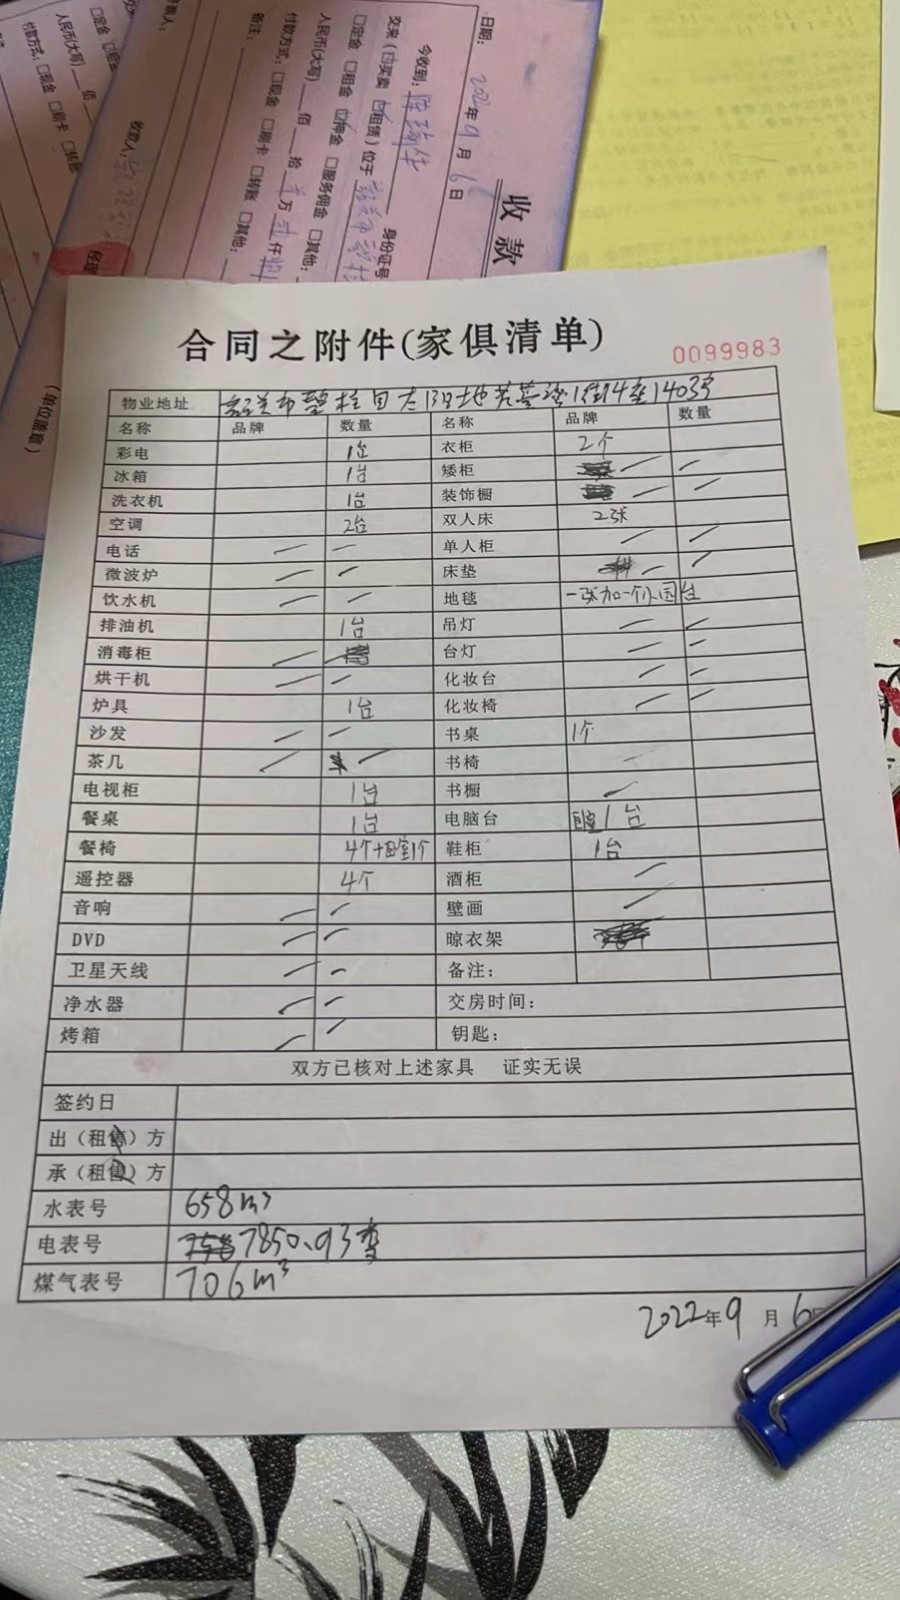 日期: 2022年9月6日
收款
今收到:
身份证号
交来(□买卖 ☑租赁)位于
□定金 □租金 ☑押金 □服务佣金 □其他:
人民币(大写) 佰 拾 万 仟
付款方式: □现金 □刷卡 □转账 □其他:
备注:
收款人:
(单位盖章)
□定金
人民币(大写) 佰
付款方式: □现金 □刷卡 □转账
合同之附件(家俱清单)
0099983
物业地址 韶关市 碧桂园太阳城 1街14座1403房
名称 品牌 数量 名称 品牌 数量
彩电 1台 衣柜 2个
冰箱 1台 矮柜 — —
洗衣机 1台 装饰橱 — —
空调 2台 双人床 2张
电话 — — 单人柜 — —
微波炉 — — 床垫 — —
饮水机 — — 地毯 一张加一个小园台
排油机 1台 吊灯 — —
消毒柜 — 台灯 — —
烘干机 — — 化妆台 — —
炉具 1台 化妆椅 — —
沙发 — — 书桌 1个
茶几 — — 书椅 —
电视柜 1台 书橱 —
餐桌 1台 电脑台 1台
餐椅 4个+卧室1个 鞋柜 1台
遥控器 4个 酒柜 —
音响 — — 壁画 —
DVD — — 晾衣架
卫星天线 — — 备注:
净水器 — — 交房时间:
烤箱 — — 钥匙:
双方已核对上述家具 证实无误
签约日
出(租售)方
承(租售)方
水表号 658m³
电表号 7850.93度
煤气表号 706m³
2022年9月6日